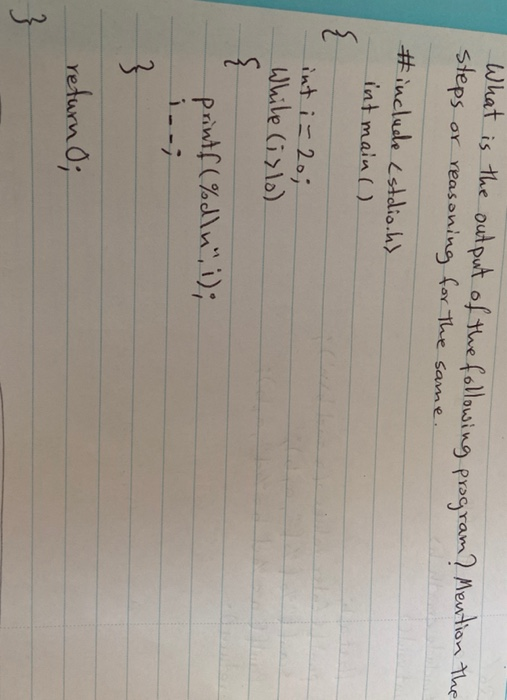 What is the output of the following program? Mention the
steps or reasoning for the same.
#include <stdio.h>
int main()
{
int i = 20;
While (i>10)
{
printf(%d\n", i);
i--;
}
return 0;
}